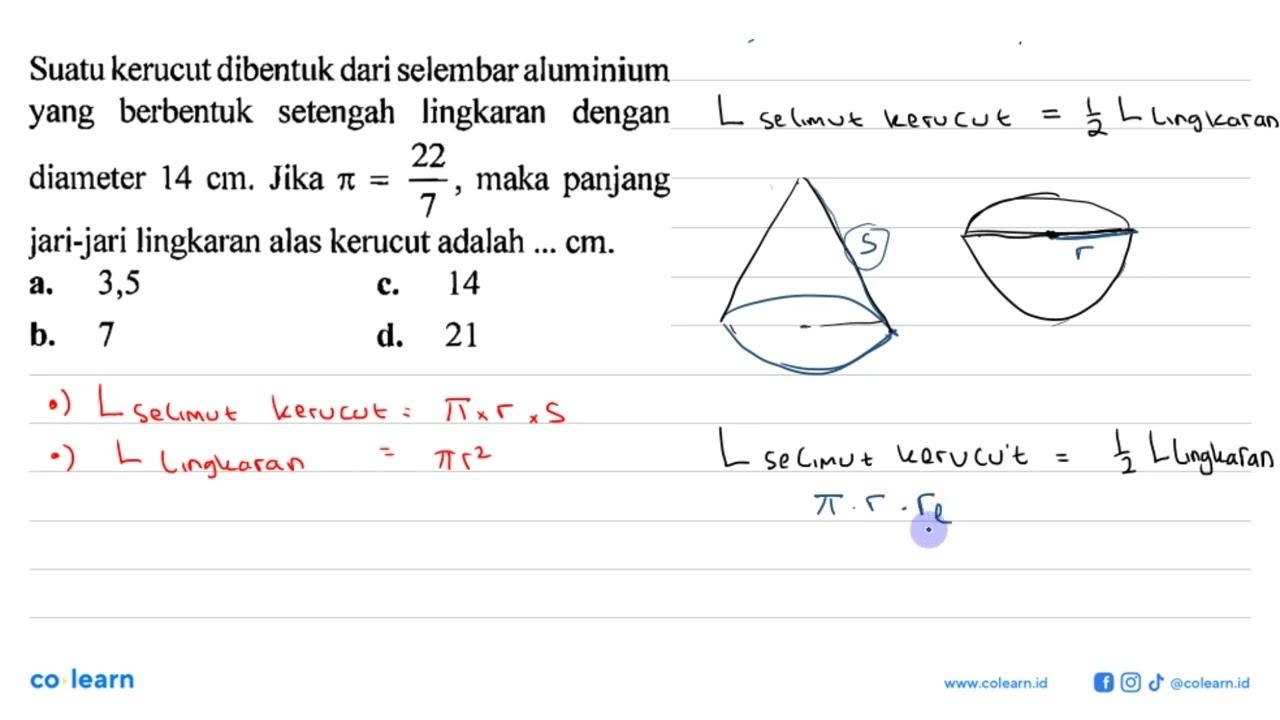 Suatu kerucut dibentuk dari selembar aluminium
yang berbentuk setengah lingkaran dengan
diameter 14 cm. Jika π = 22/7, maka panjang
jari-jari lingkaran alas kerucut adalah ... cm.
a. 3,5 c. 14
b. 7 d. 21
•) L selimut kerucut = π x r x s
•) L lingkaran = πr²
L selimut kerucut = 1/2 L lingkaran
s
r
L selimut kerucut = 1/2 L lingkaran
π . r . rl
co learn
www.colearn.id @colearn.id